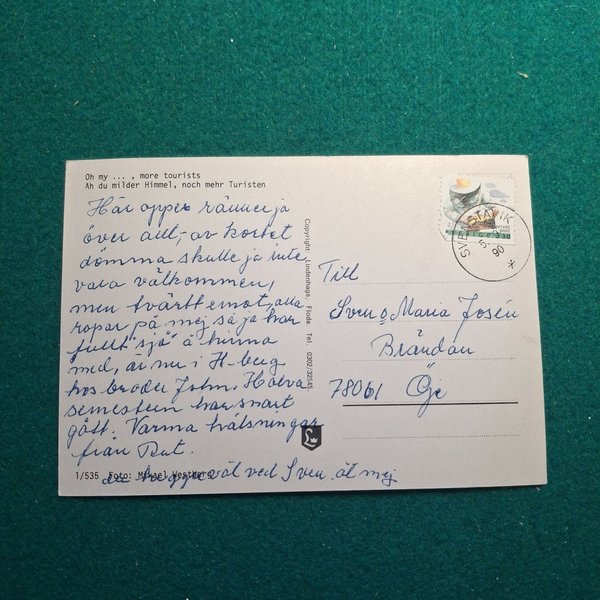 Oh my ... , more tourists
Ah du milder Himmel, noch mehr Turisten
Här oppe ränner ja
över allt, av kortet
dömma skulle ja inte
vara välkommen,
men tvärttemot, alla
ropar på mej så ja har
fullt "sjå" å hinna
med, är nu i H-berg
hos broder John. Halva
semestern har snart
gått. Varma hälsningar
från Rut.
du hugger väl ved Sven åt mej
1/535 Foto: Mikael Westberg
Copyright Lindenhags, Floda Tel 0302/32545
L
SVENSTAVIK
90
SVERIGE
Till
Sven o Maria Josén
Brändan
78061 Öje